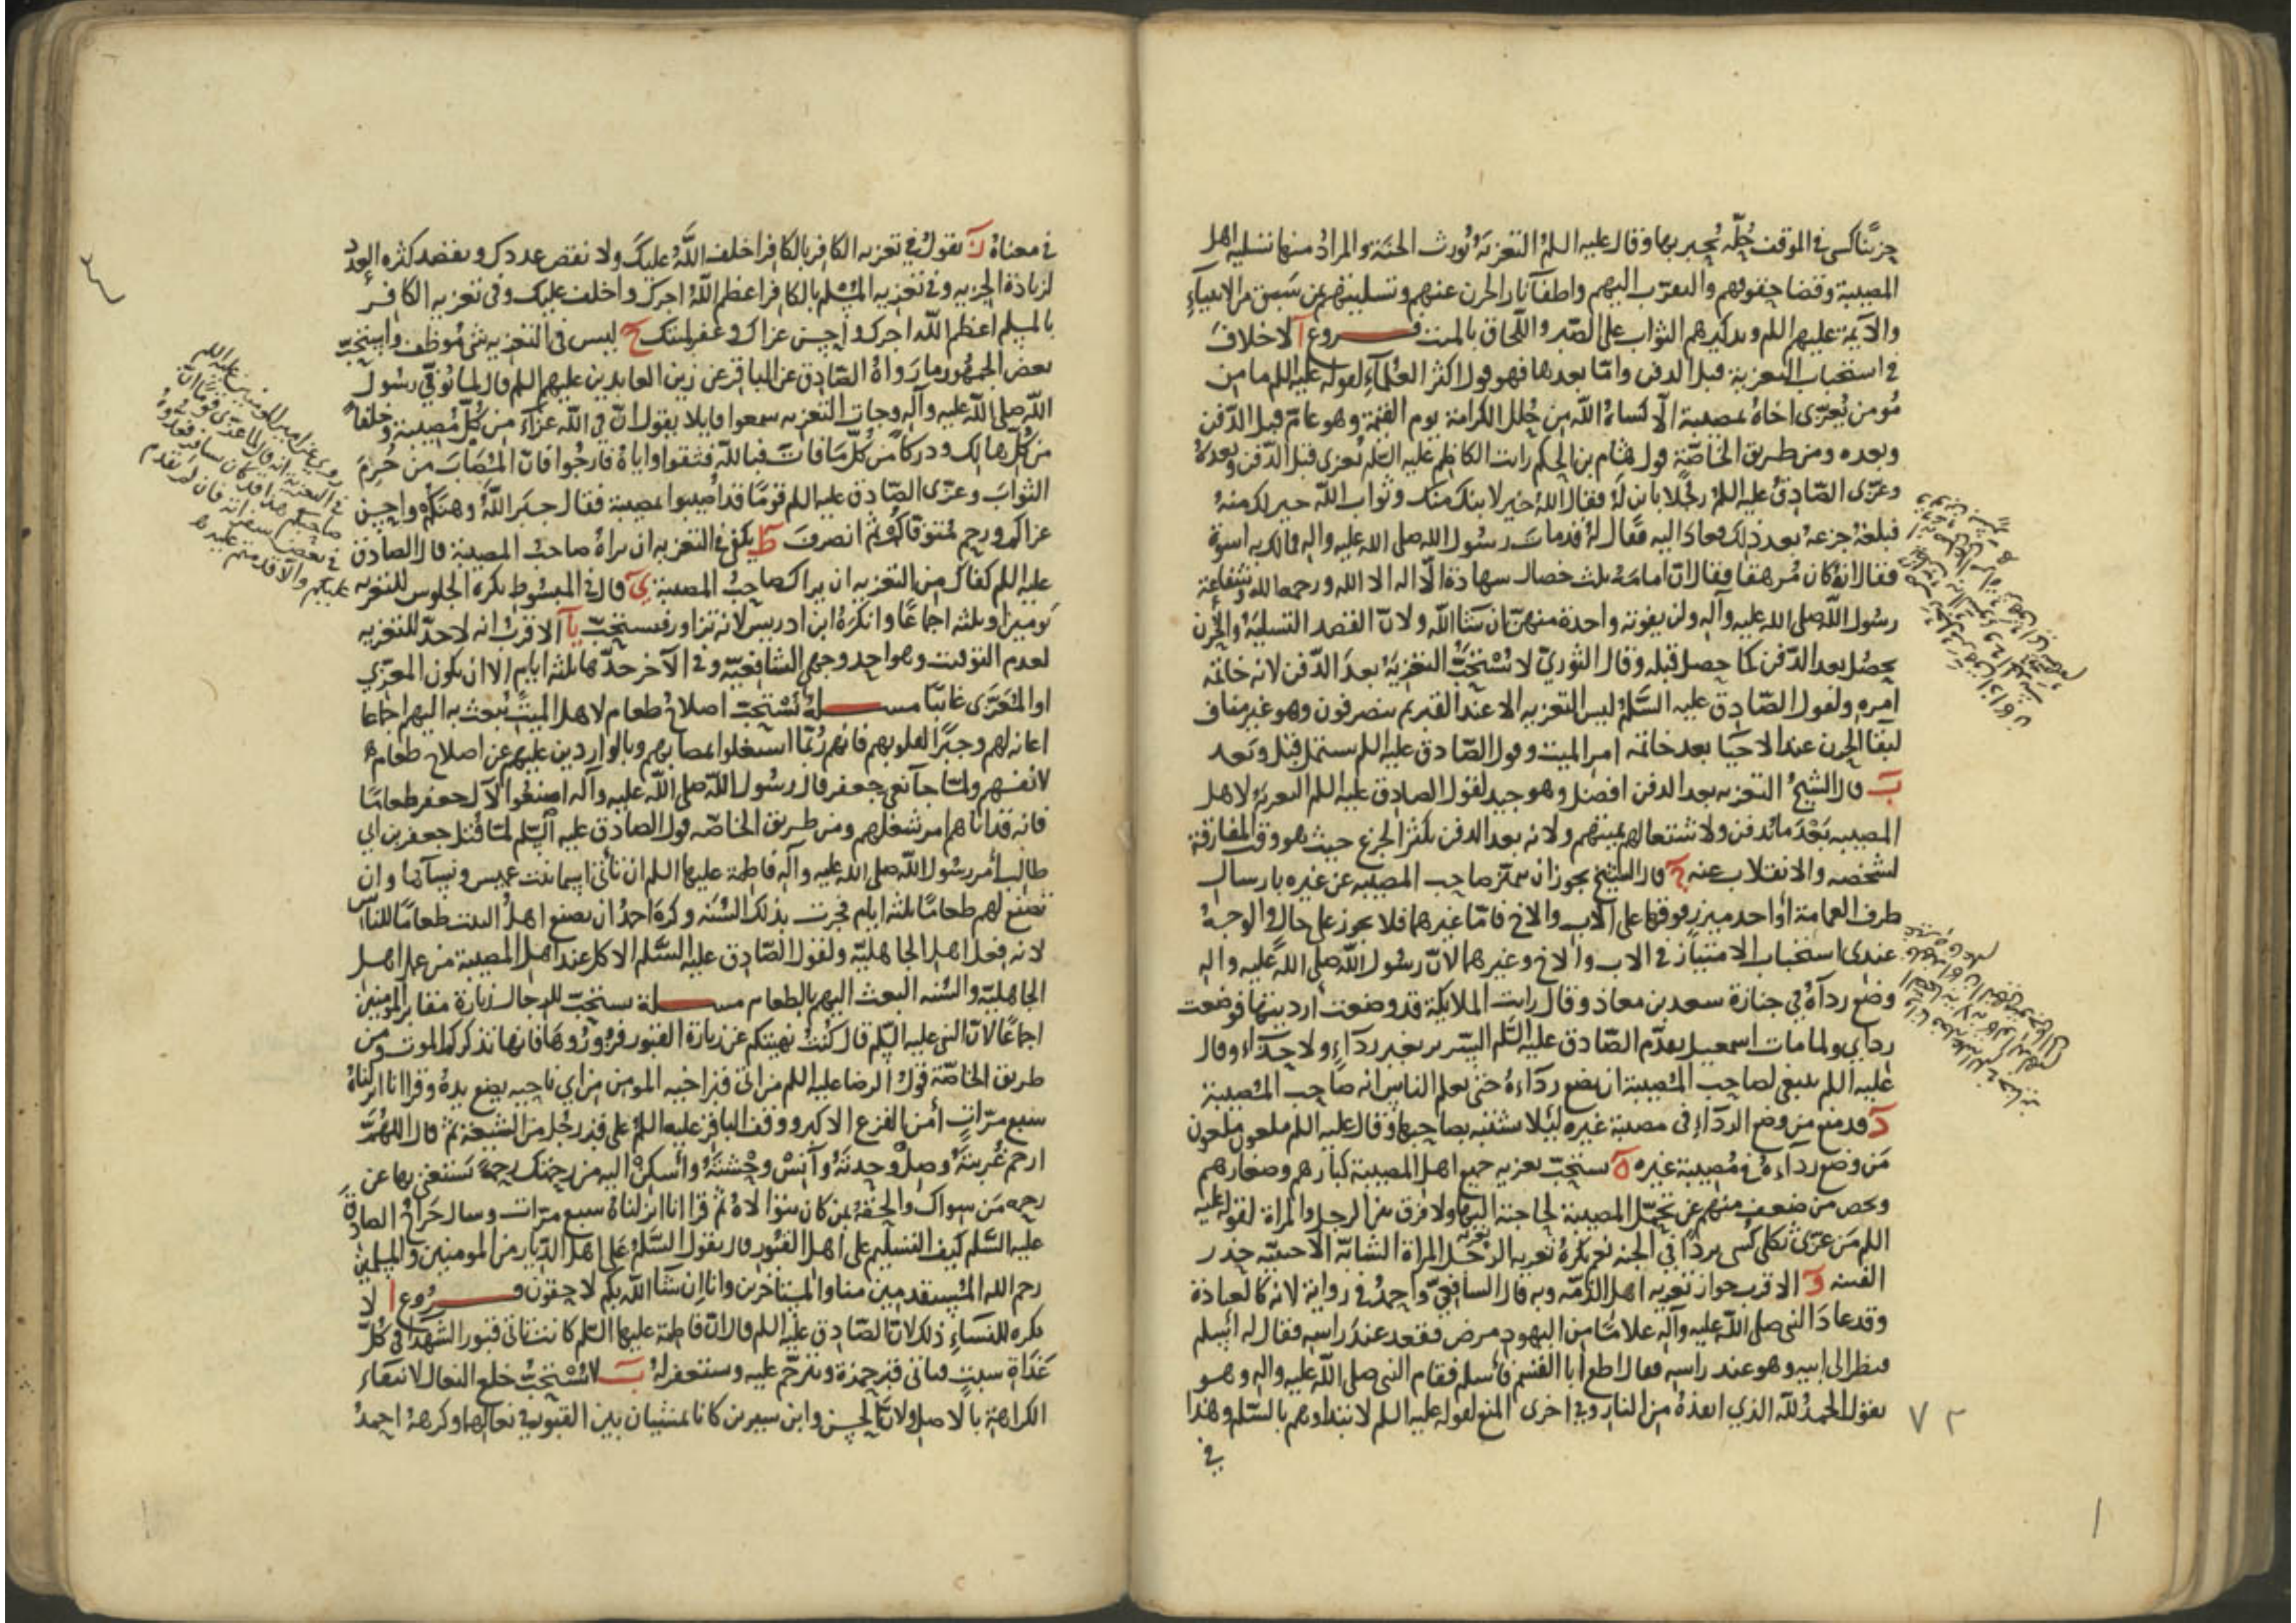 حزينا كسي في الموقف حلة يحبر بها وقال عليه السلم التعزية تورث الجنة والمراد منها تسلية اهل
المصيبة وقضا حقوقهم والتقرب اليهم واطفآ نار الحزن عنهم وتسليتهم بمن سبق من الانبيآء
والايمة عليهم السلم وتذكيرهم الثواب على الصبر واللحاق بالميت فروع آ لا خلاف
في استحباب التعزية قبل الدفن وامّا بعدها فهو قول اكثر العلمآء لقوله عليه السلم ما من
مومن يعزي اخاه بمصيبة الا كساه الله من حلل الكرامة يوم القيمة وهو عام قبل الدفن
وبعده ومن طريق الخاصّة قول هشام بن الحكم رايت الكاظم عليه السلم يعزي قبل الدفن وبعده
وعزّى الصادق عليه السلم رجلا بابن له فقال الله خير لابنك منك وثواب الله خير لك منه
فبلغه جزعه بعد ذلك فعاد اليه فقال له قد مات رسول الله صلى الله عليه واله فما لك به اسوة
فقال انه كان مرهقا فقال ان امامه ثلث خصال شهادة الا اله الا الله ورحمة الله وشفاعة
رسول الله صلى الله عليه وآله ولن يفوته واحدة منهن ان شا الله ولان القصد التسلية والحزن
يحصل بعد الدفن كما حصل قبله وقال الثوري لا تستحب التعزية بعد الدفن لانه خاتمة
امره ولقول الصادق عليه السلم ليس التعزية الا عند القبر ثم ينصرفون وهو غير مناف
لبقا الحزن عند الاحيا بعد خاتمة امر الميت وقول الصادق عليه السلم يشتمل قبل وبعد
ب قال الشيخ التعزية بعد الدفن افضل وهو جيد لقول الصادق عليه السلم التعزية لاهل
المصيبة بعد ما يدفن ولاشتغالهم بميتهم ولانه بعد الدفن يكثر الجزع حيث هو وقت المفارقة
لشخصه والانقلاب عنه ج قال الشيخ يجوز ان يتميز صاحب المصيبة عن غيره بارسال
طرف العمامة او اخذ ميزر فوقها على الاب والاخ فامّا غيرهما فلا يجوز على حال والوجه
عندي استحباب الامتياز في الاب والاخ وغيرهما لان رسول الله صلى الله عليه واله
وضع ردآه في جنازة سعد بن معاذ وقال رايت الملايكة قد وضعت أرديتها فوضعت
رداي ولما مات اسمعيل تقدم الصادق عليه السلم السرير بغير ردآء ولا حذآء وقال
عليه السلم ينبغي لصاحب المصيبة ان يضع ردآءه حتى يعلم الناس انه صاحب المصيبة
د قد منع من وضع الردآء في مصيبة غيره ليلا يشتبه بصاحبها وقال عليه السلم ملعون ملعون
من وضع ردآءه في مصيبة غيره ه يستحب تعزية جميع اهل المصيبة كبارهم وصغارهم
ويخص من ضعف منهم عن تحمّل المصيبة لحاجته اليها ولا فرق بين الرجل والمراة لقوله عليه
السلم من عزّى ثكلى كسي بردا في الجنة نعم يكره تعزية الرجل المراة الشابة الاجنبية حذر
الفتنة و الاقرب جواز تعزية اهل الذمّة وبه قال الشافعي واحمد في رواية لانه كالعيادة
وقد عاد النبي صلى الله عليه وآله غلاما من اليهود مرض فقعد عند راسه فقال له أسلم
فنظر الى ابيه وهو عند راسه فقال اطع ابا القسم فأسلم فقام النبي صلى الله عليه واله وهو
يقول الحمد لله الذي انقذه من النار وفي اخرى المنع لقوله عليه السلم لا تبدأوهم بالسلم وهذا
في
٧٢
في معناه ز يقول في تعزية الكافر بالكافر اخلف الله عليك ولا نقص عددك ويقصد كثرة العدد
لزيادة الجزية وفي تعزية المسلم بالكافر اعظم الله اجرك واخلف عليك وفي تعزية الكافر
بالمسلم اعظم الله اجرك واحسن عزاك وغفر لميتك ح ليس في التعزية شي موظف واستحب
بعض الجمهور ما رواه الصادق عن الباقر عن زين العابدين عليهم السلم قال لما توفي رسول
الله صلى الله عليه وآله وجات التعزية سمعوا قايلا يقول ان في الله عزآء من كل مصيبة وخلفا
من كل هالك ودركا من كل ما فات فبالله فثقوا واياه فارجوا فان المصاب من حرم
الثواب وعزى الصادق عليه السلم قوما قد اصيبوا بمصيبة فقال جبر الله وهنكم واحسن
عزاكم ورحم متوفاكم ثم انصرف ط يكفي في التعزية ان يراه صاحب المصيبة قال الصادق
عليه السلم كفاك من التعزية ان يراك صاحب المصيبة ي قال في المبسوط يكره الجلوس للتعزية
يومين او ثلثة اجماعا وانكره ابن ادريس لانه تزاور فيستحب يآ الاقرب انه لا حد للتعزية
لعدم التوقيت وهو احد وجهي الشافعية وفي الآخر حدها ثلثة ايام الا ان يكون المعزي
او المعزى غائبا مسلة تستحب اصلاح طعام لاهل الميت يبعث به اليهم اجماعا
اعانة لهم وجبرا لقلوبهم فانهم ربما اشتغلوا بمصابهم وبالواردين عليهم عن اصلاح طعام
لانفسهم ولما جآ نعي جعفر قال رسول الله صلى الله عليه وآله اصنعوا لآل جعفر طعاما
فانه قد اتاهم امر شغلهم ومن طريق الخاصّة قول الصادق عليه السلم لما قتل جعفر بن ابي
طالب أمر رسول الله صلى الله عليه وآله فاطمة عليها السلم ان تأتي اسما بنت عميس ونسآئها وان
تصنع لهم طعاما ثلثة ايام فجرت بذلك السنة وكره احمد ان يصنع اهل البيت طعاما للناس
لانه فعل اهل الجاهلية ولقول الصادق عليه السلم الاكل عند اهل المصيبة من عمل اهل
الجاهلية والسنة البعث اليهم بالطعام مسلة يستحب للرجال زيارة مقابر المومنين
اجماعا لان النبي عليه السلم قال كنت نهيتكم عن زيارة القبور فزوروها فانها تذكركم الموت ومن
طريق الخاصّة قول الرضا عليه السلم من اتى قبر اخيه المومن من اي ناحية يضع يده وقرا انا انزلناه
سبع مرات أمن الفزع الاكبر ووقف الباقر عليه السلم على قبر رجل من الشيعة ثم قال اللهم
ارحم غربته وصل وحدته وآنس وحشته وأسكن اليه من رحمتك رحمة يستغني بها عن
رحمة من سواك والحقه بمن كان يتولاه ثم قرا انا انزلناه سبع مرات وسال جراح الصادق
عليه السلم كيف التسليم على اهل القبور قال يقول السلم على اهل الديار من المومنين والمسلمين
رحم الله المستقدمين منا والمستاخرين وانا ان شآ الله بكم لاحقون فروع ا لا
يكره للنساء ذلك لان الصادق عليه السلم قال ان فاطمة عليها السلم كانت تاتي قبور الشهدا في كل
غداة سبت فتاتي قبر حمزة وتترحم عليه وتستغفر له ب لا تستحب خلع النعال لانتفاء
الكراهية بالاصل ولان الحسن وابن سيرين كانا يمشيان بين القبور في نعالهما وكرهه احمد
روي عن امير المومنين عليه السلم
في التعزية انه قال لما عزى قوما ان
صاحبكم هذا قد كان يسافر فعدوه
في بعض سفراته فان قدم
عليكم والا قدمتم عليه